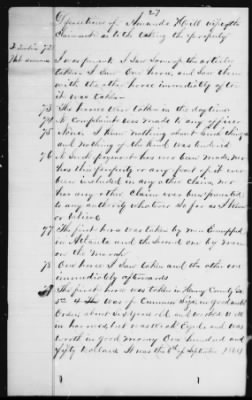 27
Deposition of Amanda Hill wife of the
Claimant as to the taking the property
Question 72
I was present I Saw Some of the articles
taken I Saw One horse, and Saw them
with the other horse immediately after
it was taken
73 The horses were taken in the daytime
74 No Complaint was made to any officer
75 None. I knew nothing about Such things
and nothing of the kind was tendered
76 No Such payment has ever been made, nor
has this property or any part of it ever
been included in any other Claim, nor
has any other Claim been presented
to any authority whatever So far as I Know
or believe
77 The first horse was taken by men Camped
in Atlanta and the Second one by men
on the March
78 One horse I Saw taken and the other one
immediately afterwards
79 The first horse was taken in Henry County Ga
was in good
Order, about Six years old and worked well
in harness, but was
worth in good money One hundred and
fifty dollars. It was the of September 1864